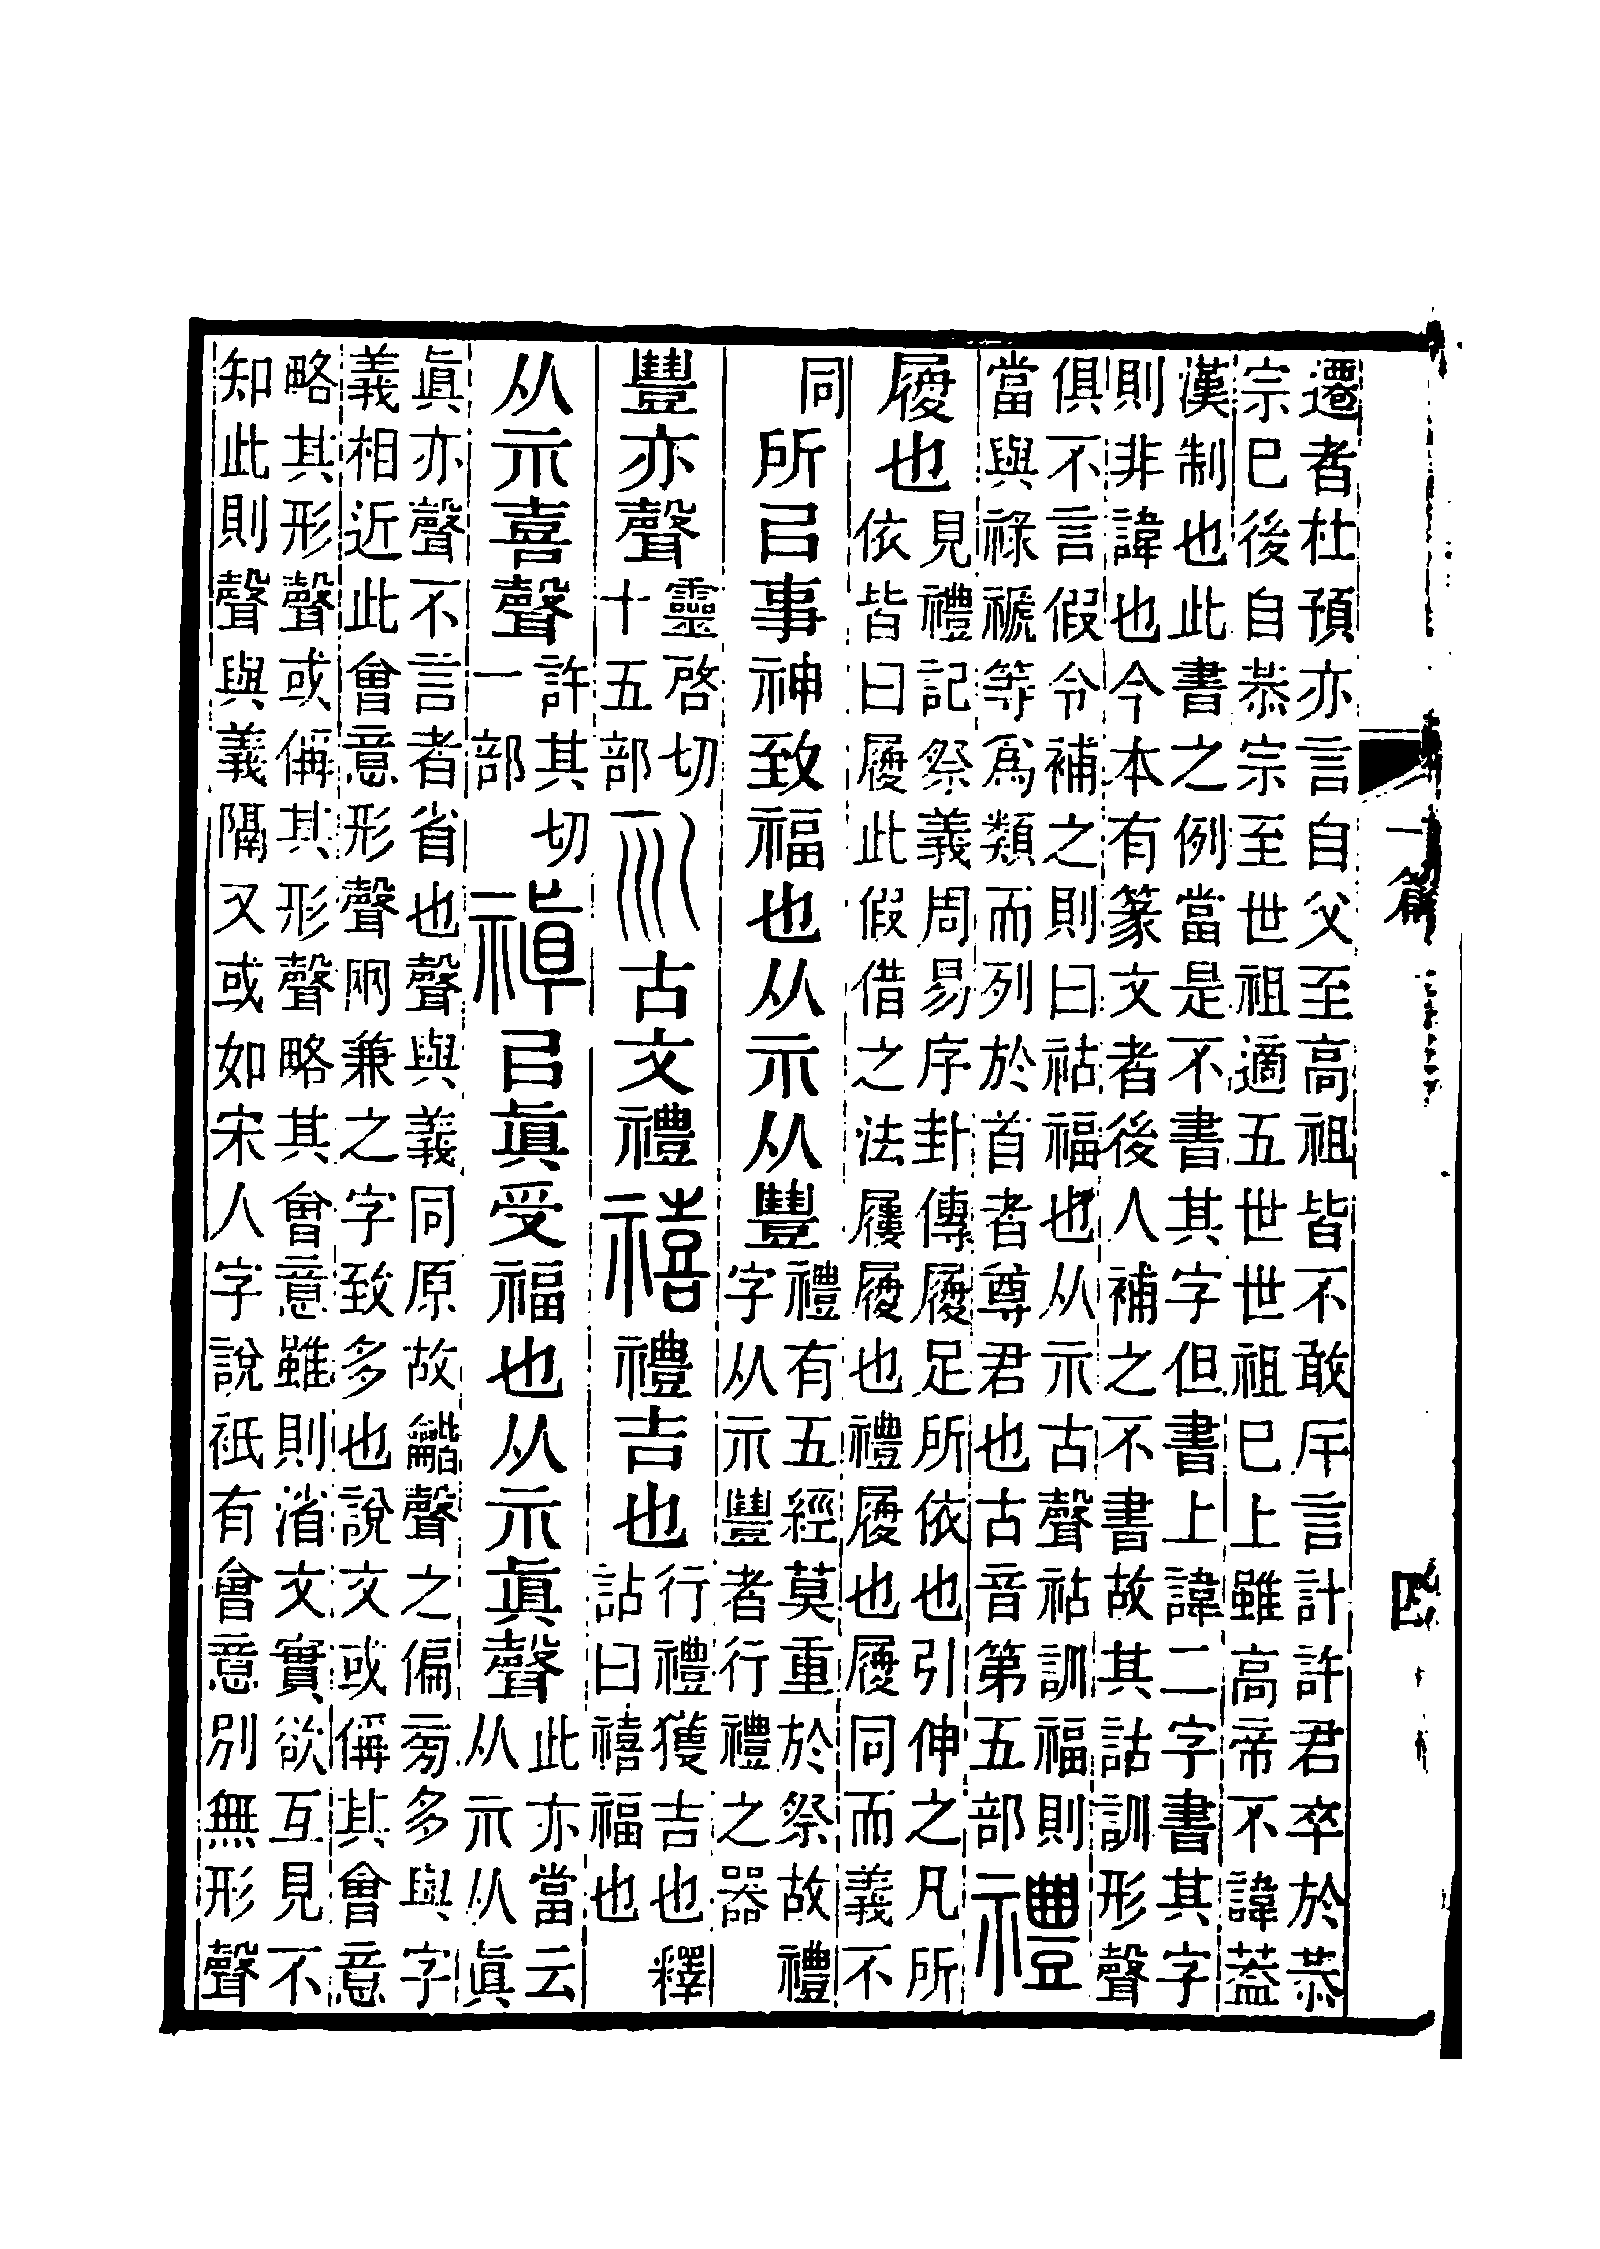 遷者杜預亦言自父至高祖皆不敢斥言計許君卒於恭
宗巳後自恭宗至世祖適五世世祖巳上雖高帝不諱葢
漢制也此書之例當是不書其字但書上諱二字書其字
則非諱也今本有篆文者後人補之不書故其詁訓形聲
俱不言假令補之則曰祜福也从示古聲祜訓福則
當與祿褫等爲類而列於首者尊君也古音第五部
禮
履也
見禮記祭義周易序卦傳履足所依也引伸之凡所
依皆曰履此假借之法屨履也禮履也履同而義不
同
所㠯事神致福也从示从豐
禮有五經莫重於祭故禮
字从示豐者行禮之器
豐亦聲
靈啓切
十五部
𠃞古文禮
禧禮吉也
行禮獲吉也釋
詁曰禧福也
从示喜聲
許其切
一部
禛㠯眞受福也从示眞聲
此亦當云
从示从眞
眞亦聲不言者省也聲與義同原故龤聲之偏㫄多與字
義相近此會意形聲网兼之字致多也說文或偁其會意
略其形聲或偁其形聲略其會意雖則渻文實欲互見不
知此則聲與義隔又或如宋人字說衹有會意別無形聲
一篇
四